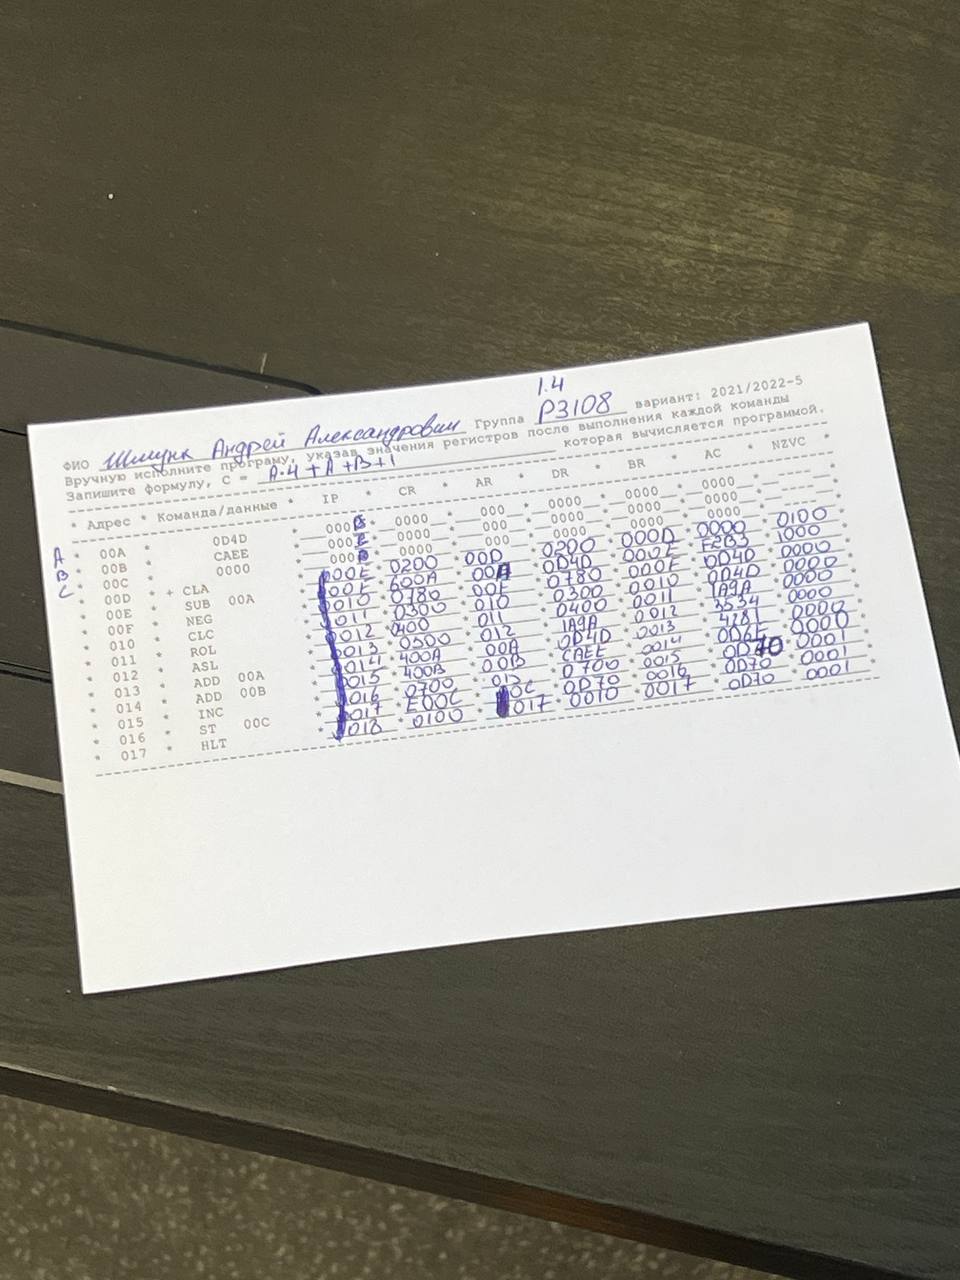 1.4
ФИО Шишук Андрей Александрович Группа P3108 вариант: 2021/2022-5
Вручную исполните програму, указав значения регистров после выполнения каждой команды
Запишите формулу, C = A·4 + A + B + 1 которая вычисляется программой.
* Адрес * Команда/данные * IP * CR * AR * DR * BR * AC * NZVC *
A * 00A * 0D4D * 000 0000 000 0000 0000 0000 ----
B * 00B * CAEE * 000 0000 000 0000 0000 0000 ----
C * 00C * 0000 * 000 0000 000 0000 0000 0000
* 00D * + CLA * 000E 0200 00D 0200 000D 0000 0100
* 00E * SUB 00A * 000F 600A 00A 0D4D 000E F2B3 1000
* 00F * NEG * 0010 0780 00F 0780 000F 0D4D 0000
* 010 * CLC * 0011 0300 010 0300 0010 0D4D 0000
* 011 * ROL * 0012 0400 011 0400 0011 1A9A 0000
* 012 * ASL * 0013 0500 012 1A9A 0012 3534 0000
* 013 * ADD 00A * 0014 400A 00A 0D4D 0013 4281 0000
* 014 * ADD 00B * 0015 400B 00B CAEE 0014 0001
* 015 * INC * 0016 0700 015 0700 0015 0D70 0001
* 016 * ST 00C * 0017 E00C 00C 0D70 0016 0D70 0001
* 017 * HLT * 0018 0100 017 0010 0017 0D70 0001